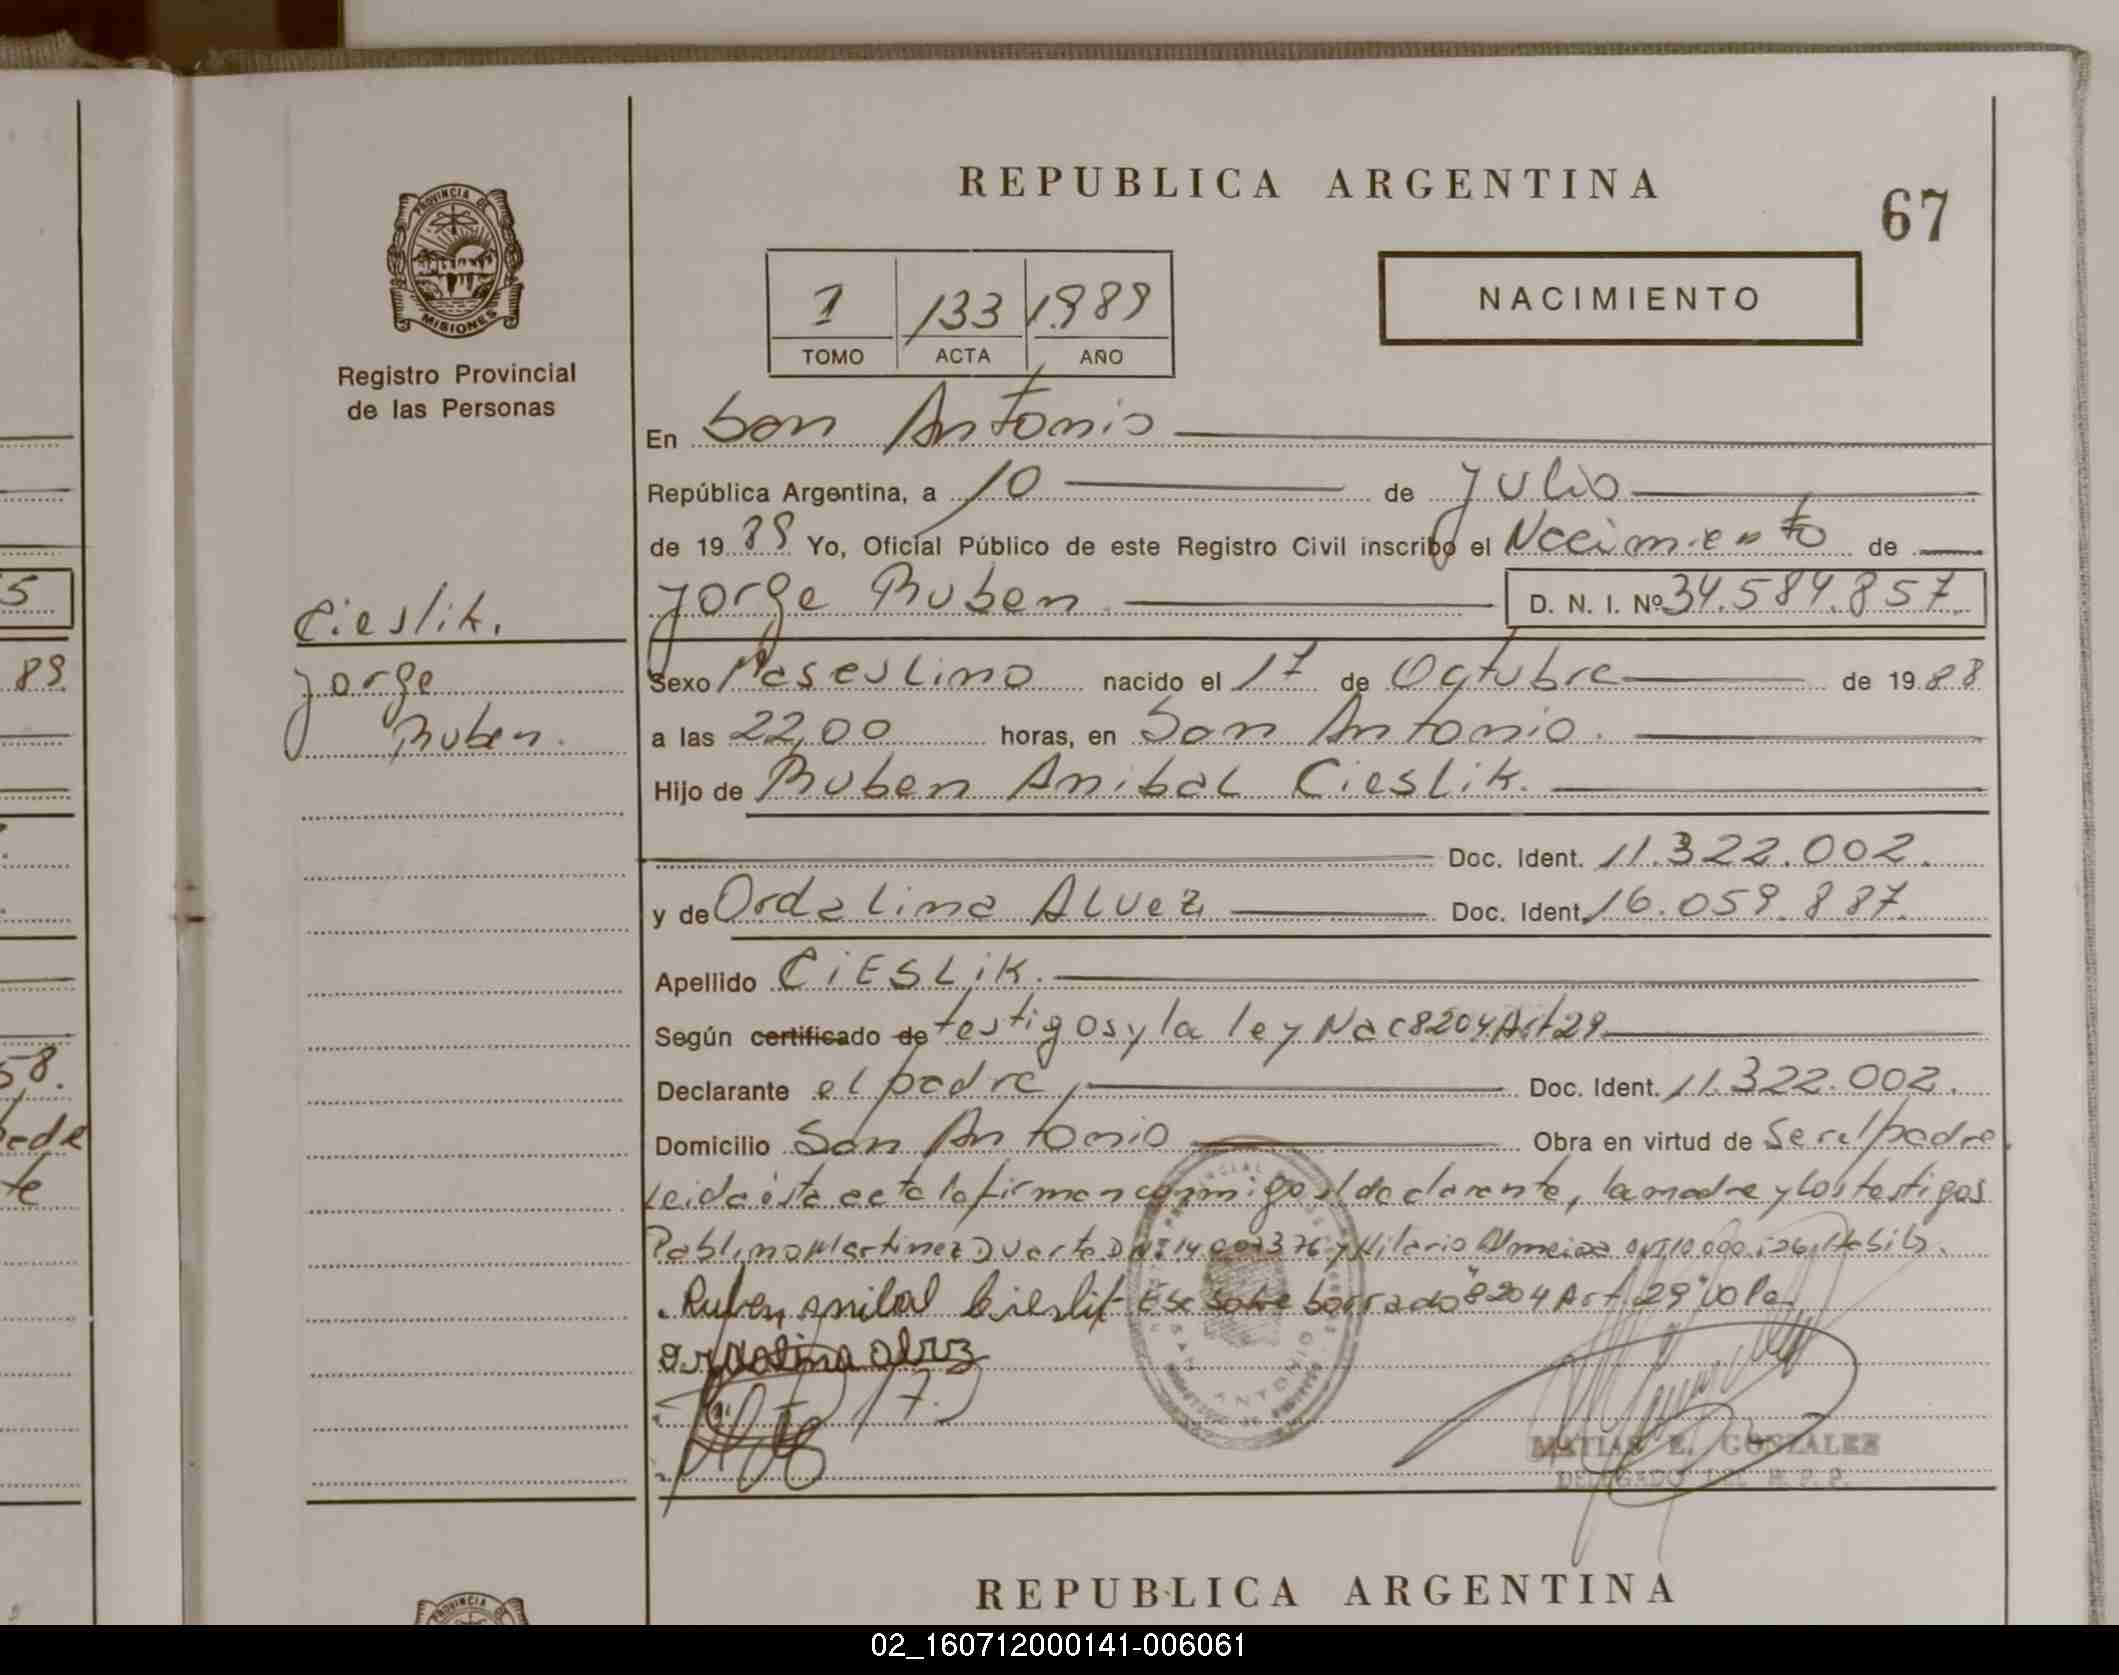 REPUBLICA ARGENTINA
67
PROVINCIA DE
MISIONES
Registro Provincial
de las Personas
1 133 1989
TOMO ACTA AÑO
NACIMIENTO
En San Antonio
República Argentina, a 10 de Julio
de 19 89 Yo, Oficial Público de este Registro Civil inscribo el Nacimiento de
Jorge Ruben D. N. I. Nº 34.584.857
Cieslik.
Jorge
Ruben.
Sexo Masculino nacido el 17 de Octubre de 19 88
a las 22,00 horas, en San Antonio.
Hijo de Ruben Anibal Cieslik.
Doc. Ident. 11.322.002.
y de Ordalina Alvez Doc. Ident. 16.059.887.
Apellido CIESLIK.
Según certificado de testigos y la ley Nac 8204 Art 29
Declarante el padre, Doc. Ident. 11.322.002.
Domicilio San Antonio Obra en virtud de Ser el padre.
Leida ésta acta la firman conmigo el declarante, la madre y los testigos
Pablino Martinez Duarte y Hilario Almeida
Ruben Anibal Cieslik sobre borrado "8204 Art 29" Vale
SAN ANTONIO
MATIAS E. GONZALEZ
DELEGADO DEL R. P. P.
5
89
58.
te
REPUBLICA ARGENTINA
PROVINCIA DE
02_160712000141-006061